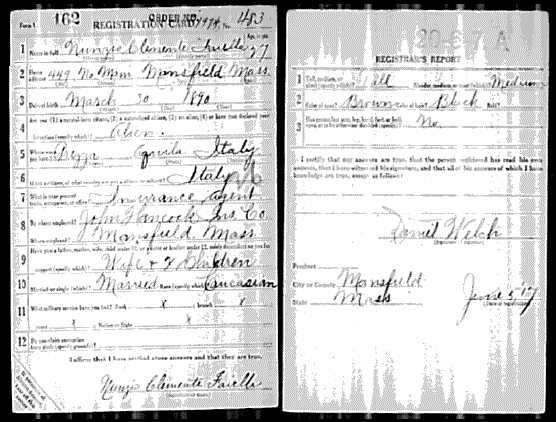 Form 1
162
ORDER NO.
REGISTRATION CARD
No. 483
1 Name in full Nunzio Clemente
27
2 Home address 449 No Main Mansfield Mass.
3 Date of birth March 30 1890
4 Are you (1) a natural-born citizen, (2) a naturalized citizen, (3) an alien, (4) or have you declared your
intention (specify which)? Alien
5 Where were you born? Italy
6 If not a citizen, of what country are you a citizen or subject? Italy
7 What is your present trade, occupation, or office? Insurance Agent
8 By whom employed? John Hancock Ins. Co.
Where employed? Mansfield Mass
9 Have you a father, mother, wife, child under 12, or a sister or brother under 12, solely dependent on you for
support (specify which)? Wife + Children
10 Married or single (which)? Married Race (specify which)? Caucasian
11 What military service have you had? Rank x ; branch x
years x ; Nation or State x
12 Do you claim exemption
from draft (specify grounds)?
I affirm that I have verified above answers and that they are true.
Nunzio Clemente
20-6-7 A
REGISTRAR'S REPORT
1 Tall, medium, or short (specify which)? Tall Slender, medium, or stout (which)? Medium
2 Color of eyes? Brown Color of hair? Black Bald?
3 Has person lost arm, leg, hand, foot, or both
eyes, or is he otherwise disabled (specify)? No
I certify that my answers are true, that the person registered has read his own
answers, that I have witnessed his signature, and that all of his answers of which I have
knowledge are true, except as follows:
Daniel Welch
Precinct
City or County Mansfield
State Mass
June 5, 17